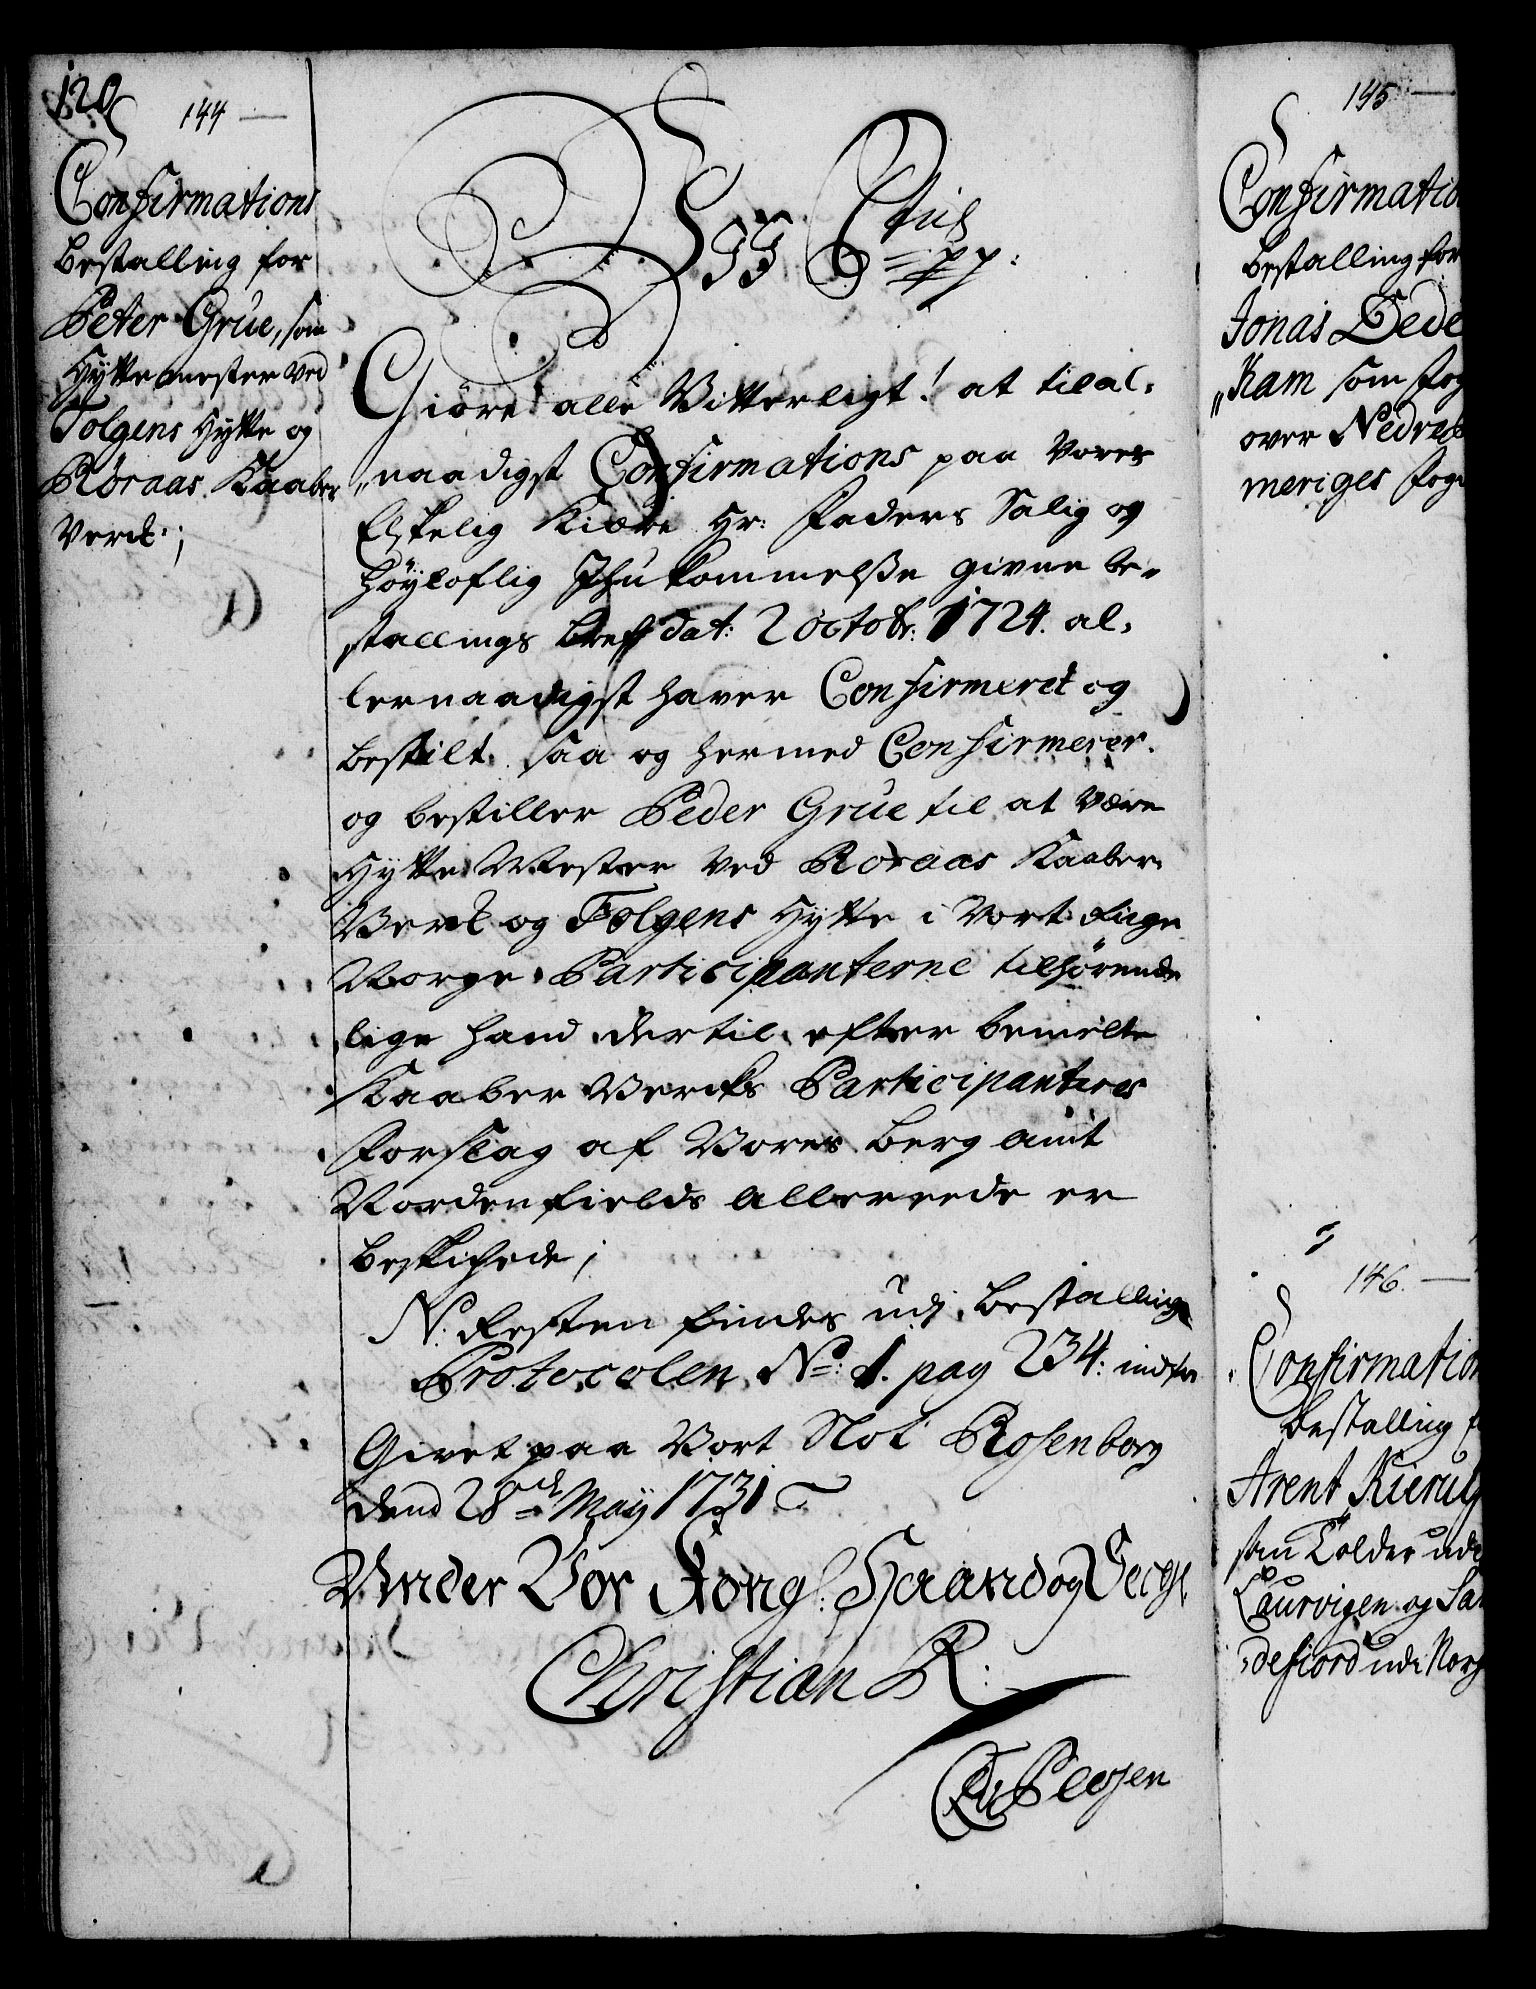 120
144
Confirmations
bestalling for
Peter Grüe, som
Hyttemester ved
Tolgens Hytte og
Röraas Kaaber
Verck;
Vii C 6tus pp:
Giöre alle Vitterligt! at til al,
naadigst Confirmations paa Vores
Elskelig Kiære Hr: Faders Salig og
höyloflig Ihukommelße givne be-
stallings bref dat: 2 octobr: 1724. al,
lernaadigst haver Confirmeret og
bestilt, saa og hermed Confirmerer
og bestiller Peder Grüe til at være
Hytte Mester ved Roraas Kaaber
Verck og Tolgens Hytte i Vort Rige
Norge, Participanterne tilhörende
lige hand dertil efter bemelte
Kaaber Vercks Participanters
forslag af Vores Berg amt
Nordenfields allerede er
beskichede;
N: Resten findes udj Bestallings
Protocolen No: 1. pag 234: indfør
Givet paa Vort Slot Rosenborg
dend 28de May 1731
Under Vor Kongl: Haand og Seigl
Christian R:
CA Plessen
145
Confirmatio
bestalling for
Jonas Dede
„Kam som Fog
over Nedre
meriges Fog
146.
Confirmation
bestalling f
Arent Kierul
som Tolder ude
Laurvigen og Sa
defiord udi Nor